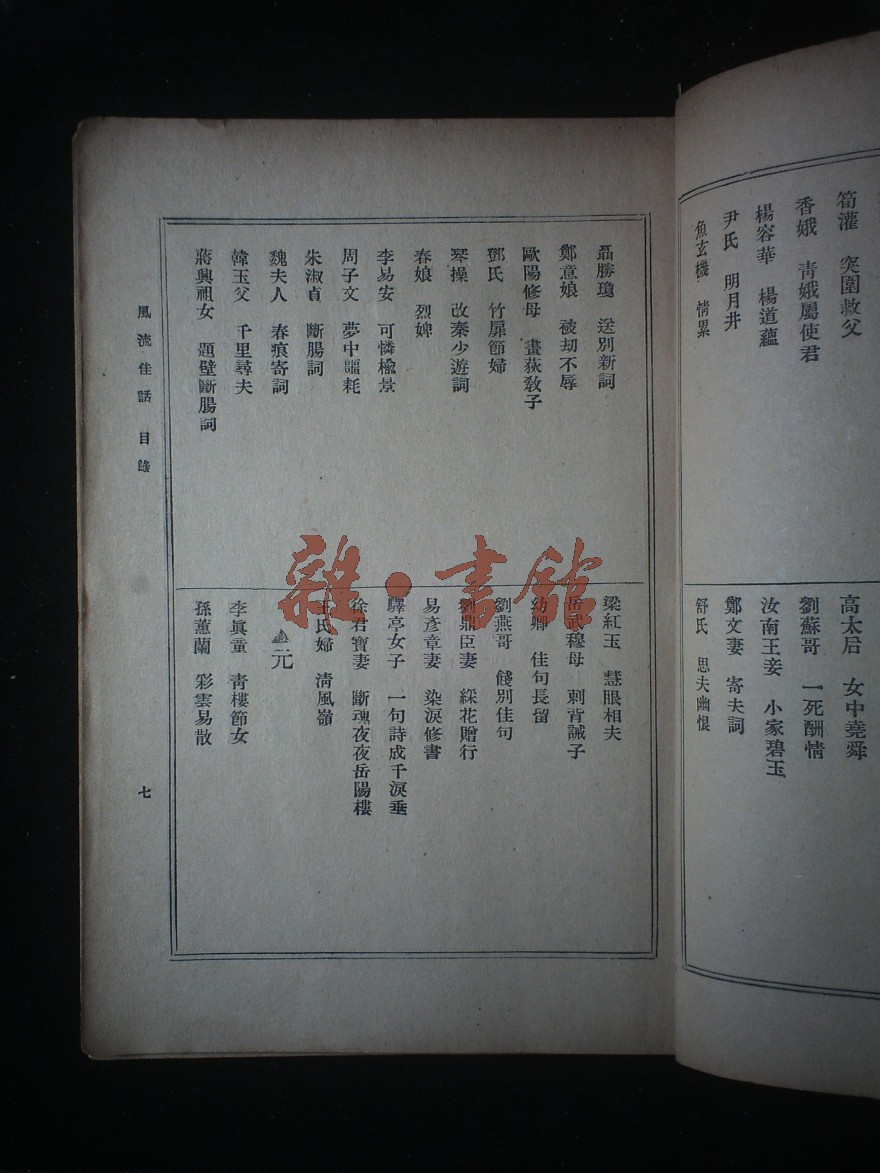 荀灌　突圍救父
香娥　靑娥屬使君
楊容華　楊道蘊
尹氏　明月井
魚玄機　情累
高太后　女中堯舜
劉蘇哥　一死酬情
汝南王妾　小家碧玉
鄭文妻　寄夫詞
舒氏　思夫幽恨
聶勝瓊　送別新詞
鄭意娘　被刧不辱
歐陽修母　畫荻敎子
鄧氏　竹扉節婦
琴操　改秦少遊詞
春娘　烈婢
李易安　可憐楡景
周子文　夢中噩耗
朱淑貞　斷腸詞
魏夫人　春痕寄詞
韓玉父　千里尋夫
蔣興祖女　題壁斷腸詞
梁紅玉　慧眼相夫
岳武穆母　刺背誡子
幼卿　佳句長留
劉燕哥　餞別佳句
劉鼎臣妻　綵花贈行
易彥章妻　染淚修書
驛亭女子　一句詩成千淚垂
徐君寶妻　斷魂夜夜岳陽樓
王氏婦　淸風嶺
元
李眞童　靑樓節女
孫蕙蘭　彩雲易散
風流佳話　目錄
七
雜·書館